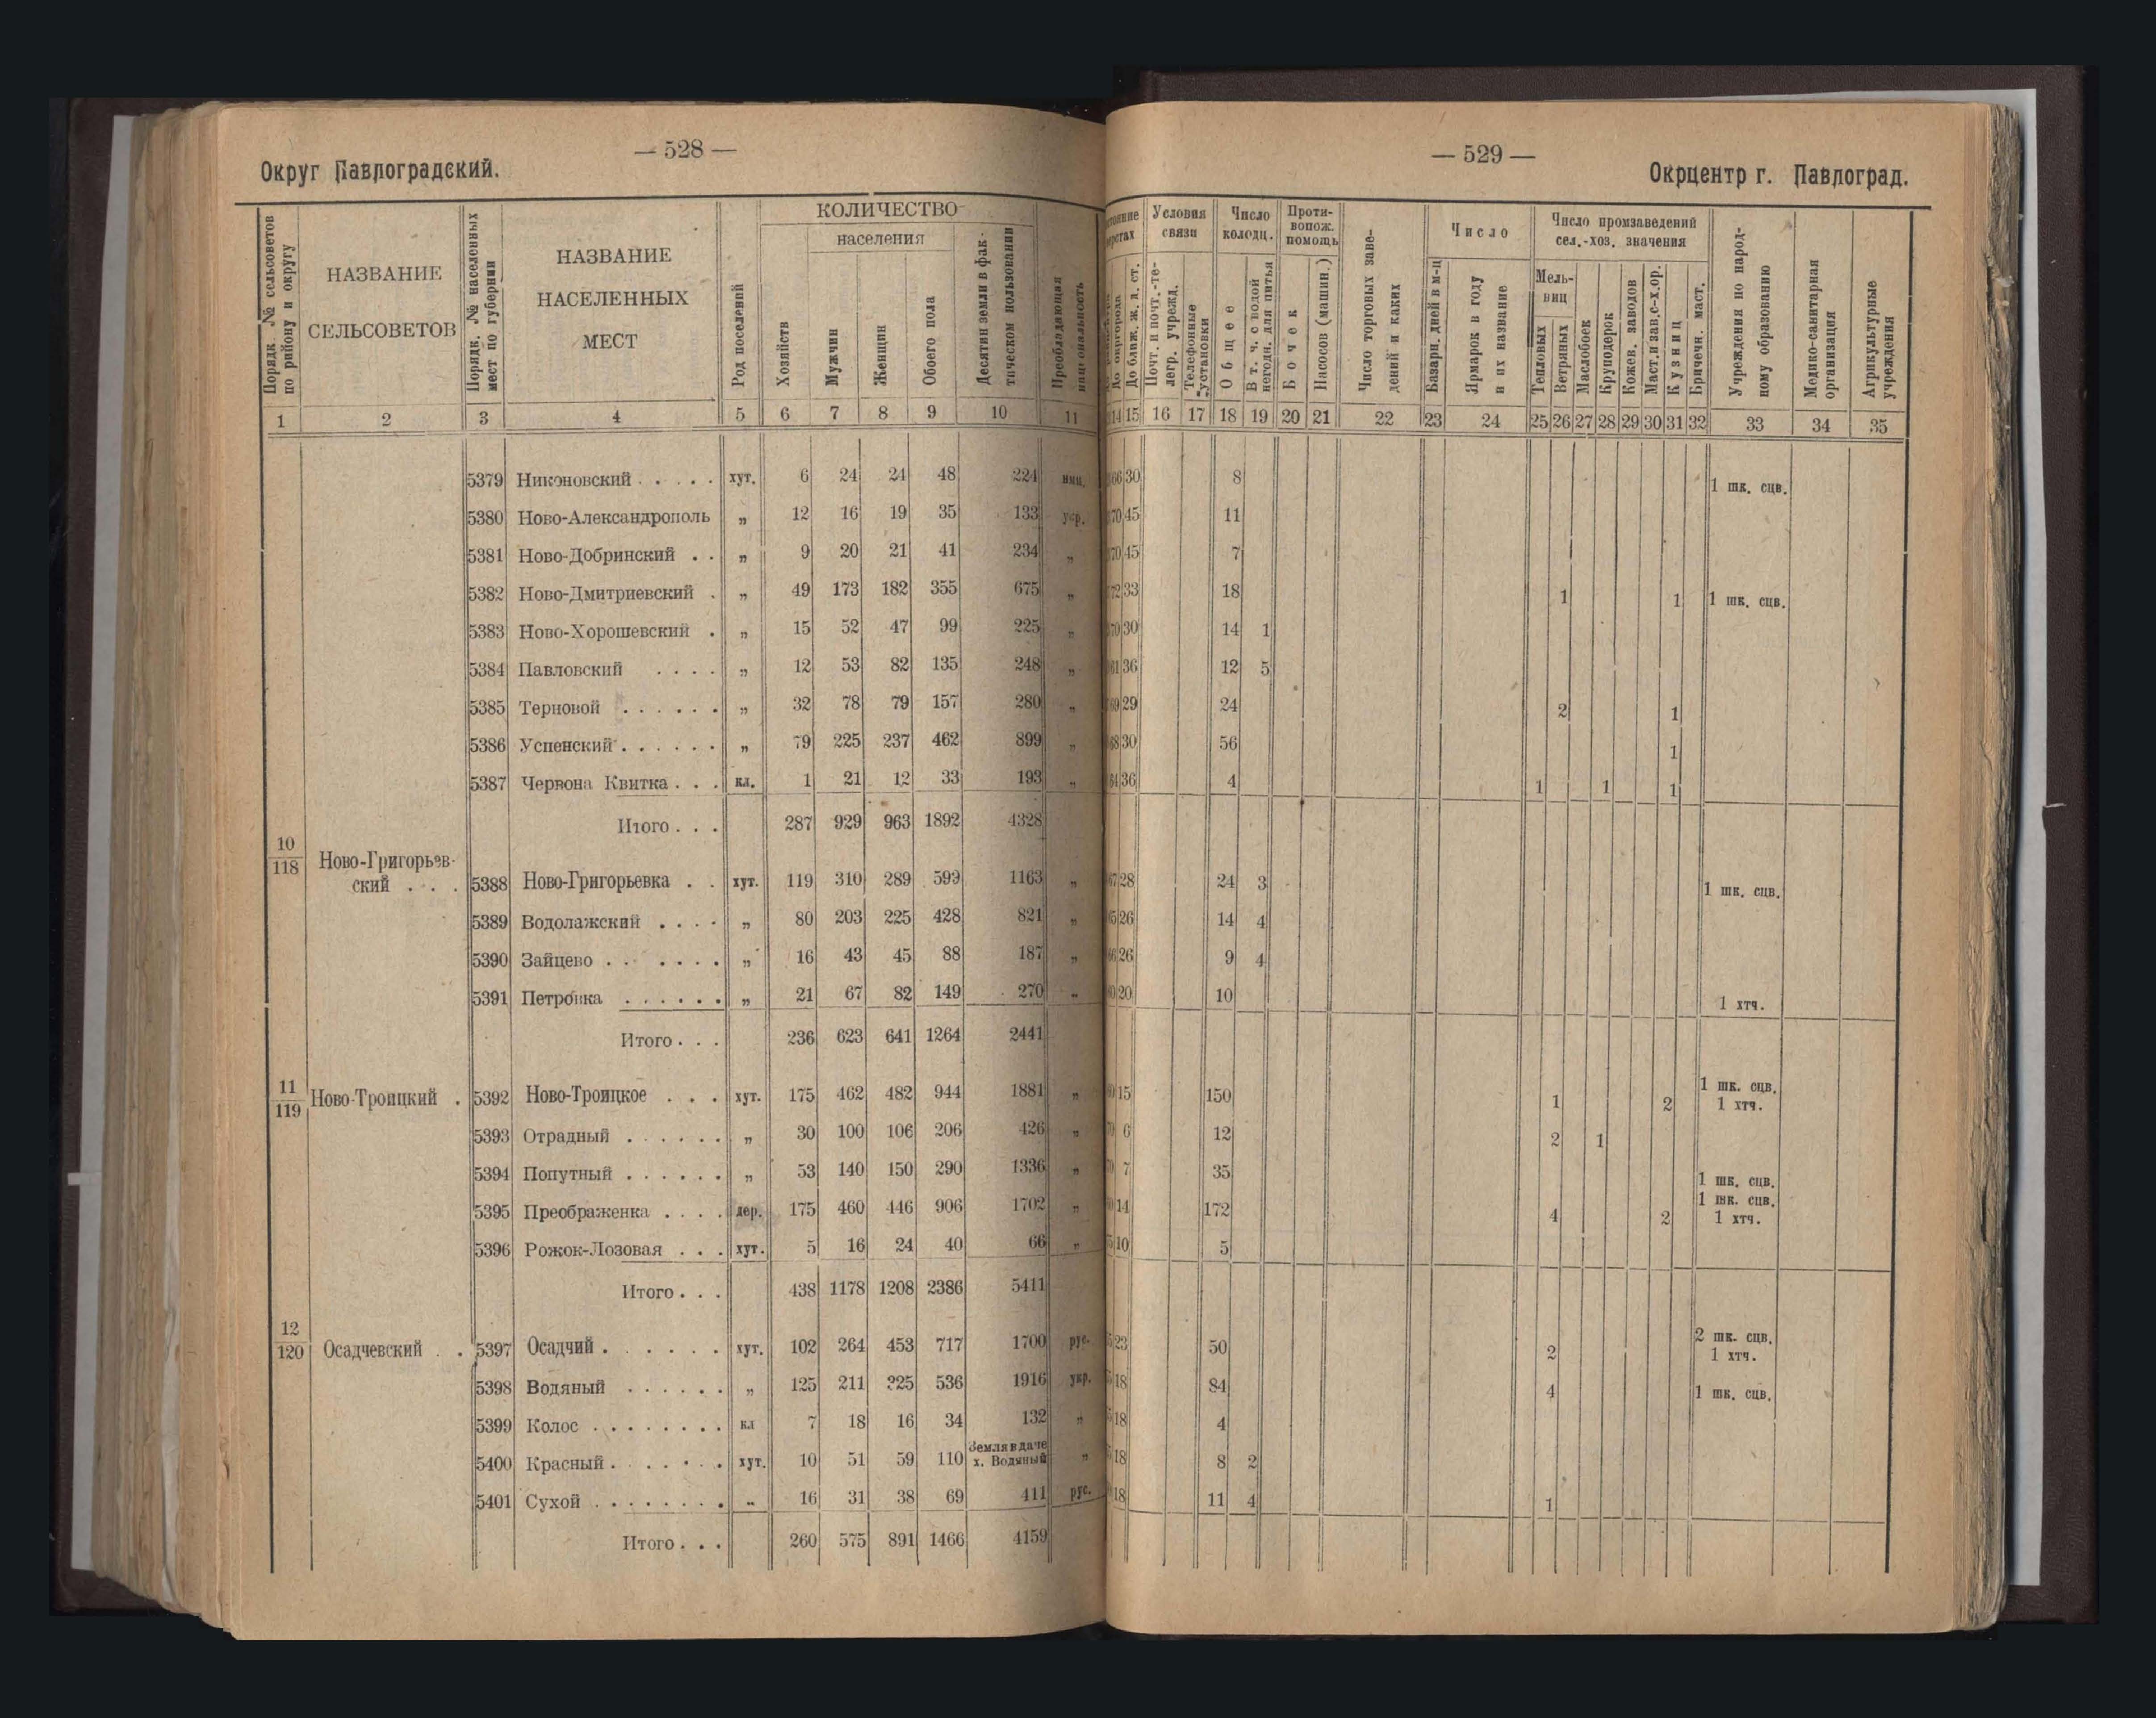 — 528 —
Округ Павлоградский.
Порядк. № сельсоветов по району и округу
НАЗВАНИЕ СЕЛЬСОВЕТОВ
Порядк. № населенных мест по губернии
НАЗВАНИЕ НАСЕЛЕННЫХ МЕСТ
Род поселений
КОЛИЧЕСТВО
населения
Хозяйств
Мужчин
Женщин
Обоего пола
Десятин земли в фактическом пользовании
Преобладающая национальность
1 2 3 4 5 6 7 8 9 10 11
5379 Никоновский . . . . . хут. 6 24 24 48 224 нмц.
5380 Ново-Александрополь „ 12 16 19 35 133 укр.
5381 Ново-Добринский . . „ 9 20 21 41 234 „
5382 Ново-Дмитриевский . „ 49 173 182 355 675 „
5383 Ново-Хорошевский . „ 15 52 47 99 225 „
5384 Павловский . . . . „ 12 53 82 135 248 „
5385 Терновой . . . . . . „ 32 78 79 157 280 „
5386 Успенский . . . . . . „ 79 225 237 462 899 „
5387 Червона Квитка . . . кл. 1 21 12 33 193 „
Итого . . . 287 929 963 1892 4328
10/118 Ново-Григорьев-
ский . . . 5388 Ново-Григорьевка . . хут. 119 310 289 599 1163 „
5389 Водолажский . . . . „ 80 203 225 428 821 „
5390 Зайцево . . . . . . „ 16 43 45 88 187 „
5391 Петровка . . . . . . „ 21 67 82 149 270 „
Итого . . . 236 623 641 1264 2441
11/119 Ново-Троицкий . 5392 Ново-Троицкое . . . хут. 175 462 482 944 1881 „
5393 Отрадный . . . . . . „ 30 100 106 206 426 „
5394 Попутный . . . . . . „ 53 140 150 290 1336 „
5395 Преображенка . . . . дер. 175 460 446 906 1702 „
5396 Рожок-Лозовая . . . хут. 5 16 24 40 66 „
Итого . . . 438 1178 1208 2386 5411
12/120 Осадчевский . . 5397 Осадчий . . . . . . хут. 102 264 453 717 1700 рус.
5398 Водяный . . . . . . „ 125 211 325 536 1916 укр.
5399 Колос . . . . . . . . кл 7 18 16 34 132 „
5400 Красный . . . . . . хут. 10 51 59 110 Земля в даче х. Водяный „
5401 Сухой . . . . . . . . „ 16 31 38 69 411 рус.
Итого . . . 260 575 891 1466 4159
— 529 —
Окрцентр г. Павлоград.
До ближ. ж. д. ст.
Условия связи
Почт. и почт.-телегр. учрежд.
Телефонные установки
Число колодц.
Общее
В т. ч. с водой негодн. для питья
Противопож. помощь
Бочек
Насосов (машин.)
Число торговых заведений и каких
Число
Базарн. дней в м-ц
Ярмарок в году и их название
Число промзаведений сел.-хоз. значения
Мельниц
Тепловых
Ветряных
Маслобоек
Круподерок
Кожев. заводов
Маст. и зав. с-х. ор.
Кузниц
Кирпичн. маст.
Учреждения по народному образованию
Медико-санитарная организация
Агрикультурные учреждения
14 15 16 17 18 19 20 21 22 23 24 25 26 27 28 29 30 31 32 33 34 35
30 8 1 шк. сцв.
45 11
45 7
33 18 1 1 1 шк. сцв.
30 14 1
36 12 5
29 24 2 1
30 56 1
36 4 1 1 1
28 24 3 1 шк. сцв.
26 14 4
26 9 4
20 10 1 хтч.
15 150 1 2 1 шк. сцв.
1 хтч.
6 12 2 1
7 35 1 шк. сцв.
14 172 4 2 1 шк. сцв.
1 хтч.
10 5
23 50 2 2 шк. сцв.
1 хтч.
18 84 4 1 шк. сцв.
18 4
18 8 2
18 11 4 1